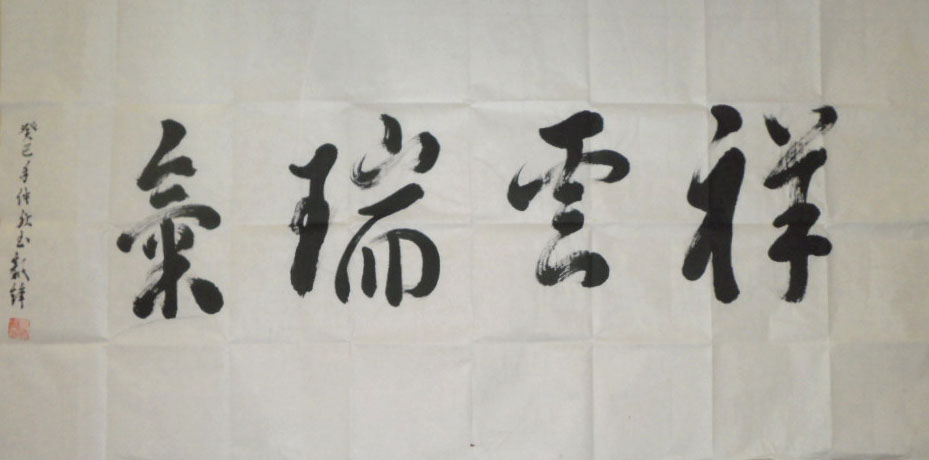 祥雲瑞氣
癸巳年仲秋